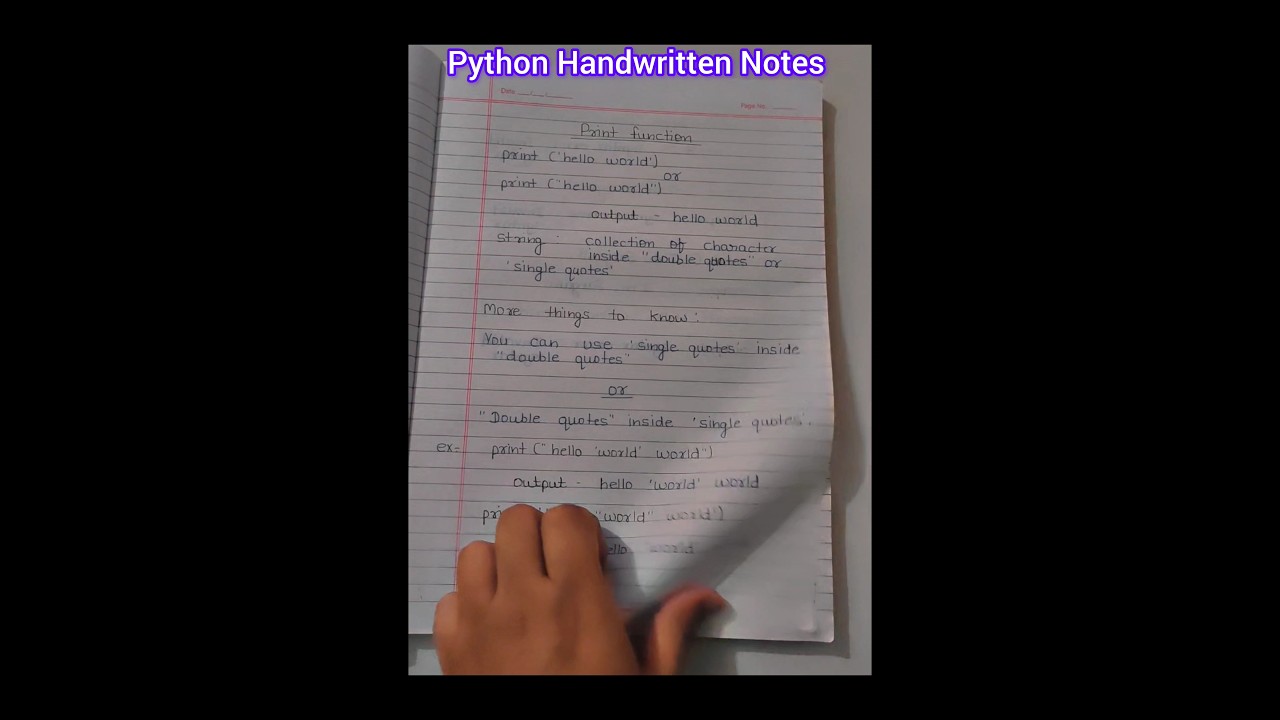 Python Handwritten Notes
Date
Page No.
Print function
print ('hello world')
or
print ("hello world")
output - hello world
string : collection of character
inside "double quotes" or
'single quotes'
More things to know :
You can use 'single quotes' inside
"double quotes"
or
"Double quotes" inside 'single quotes'.
ex- print ("hello 'world' world")
output - hello 'world' world
"world" world')
world